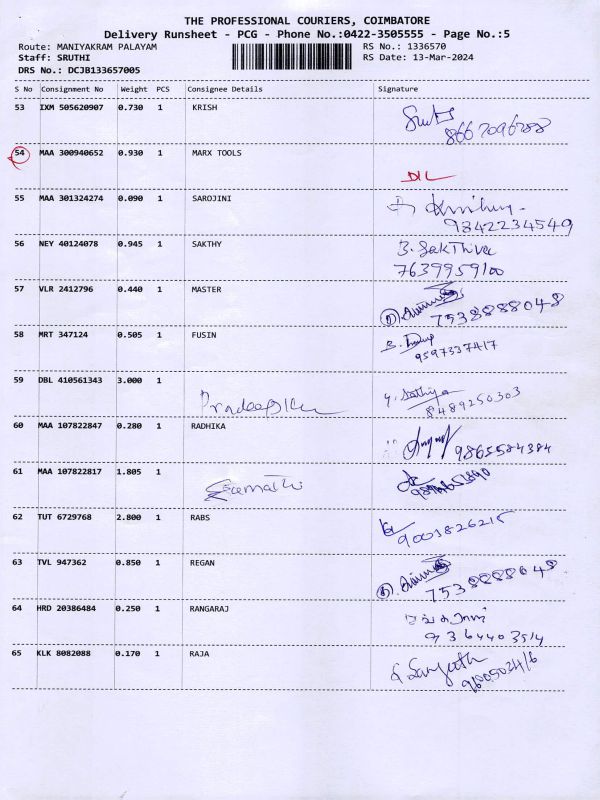 THE PROFESSIONAL COURIERS, COIMBATORE
Delivery Runsheet - PCG - Phone No.:0422-3505555 - Page No.:5
Route: MANIYAKRAM PALAYAM RS No.: 1336570
Staff: SRUTHI RS Date: 13-Mar-2024
DRS No.: DCJB133657005
S No Consignment No Weight PCS Consignee Details Signature
53 IXM 505620907 0.730 1 KRISH
8667096788
54 MAA 300940652 0.930 1 MARX TOOLS
D/L
55 MAA 301324274 0.090 1 SAROJINI
9842234549
56 NEY 40124078 0.945 1 SAKTHY B. SakThivel
7639959100
57 VLR 2412796 0.440 1 MASTER
7538888048
58 MRT 347124 0.505 1 FUSIN
9597337417
59 DBL 410561343 3.000 1
Pradeep y. Sathiya
8489250303
60 MAA 107822847 0.280 1 RADHIKA
9865584384
61 MAA 107822817 1.805 1
62 TUT 6729768 2.800 1 RABS
9003826215
63 TVL 947362 0.850 1 REGAN
7538888048
64 HRD 20386484 0.250 1 RANGARAJ ரங்கராஜ்
9364403514
65 KLK 8082088 0.170 1 RAJA